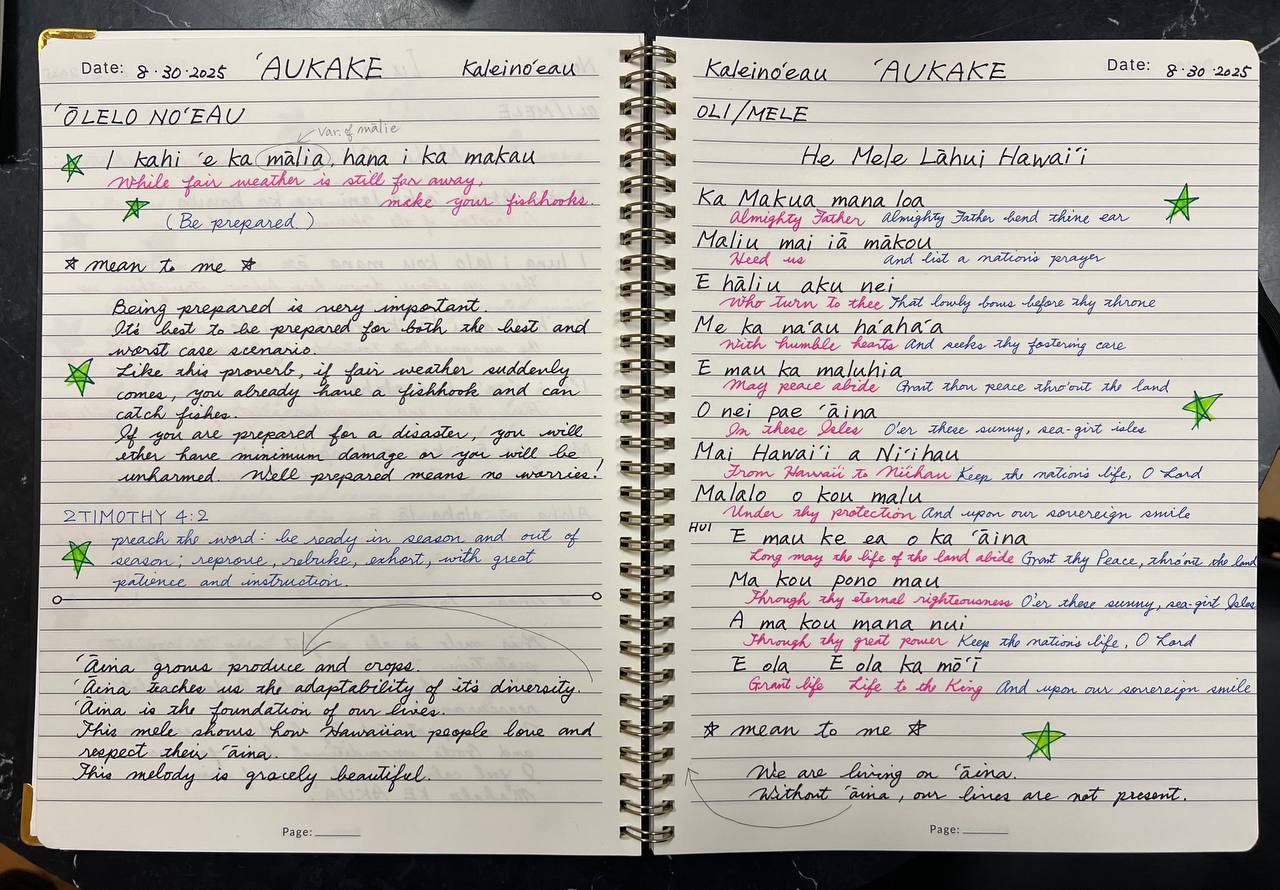 Date: 8.30.2025 ʻAUKAKE Kaleinoʻeau
ʻŌLELO NOʻEAU
var. of mālie
I kahi ʻe ka mālia, hana i ka makau
While fair weather is still far away,
make your fishhooks.
(Be prepared)
☆ mean to me ☆
Being prepared is very important.
It's best to be prepared for both the best and
worst case scenario.
Like this proverb, if fair weather suddenly
comes, you already have a fishhook and can
catch fishes.
If you are prepared for a disaster, you will
either have minimum damage or you will be
unharmed. Well prepared means no worries!
2 TIMOTHY 4:2
preach the word: be ready in season and out of
season; reprove, rebuke, exhort, with great
patience and instruction.
ʻĀina grows produce and crops.
ʻĀina teaches us the adaptability of it's diversity.
ʻĀina is the foundation of our lives.
This mele shows how Hawaiian people love and
respect their ʻāina.
This melody is gracely beautiful.
Page:
Kaleinoʻeau ʻAUKAKE Date: 8.30.2025
OLI/MELE
He Mele Lāhui Hawaiʻi
Ka Makua mana loa
Almighty Father Almighty Father bend thine ear
Maliu mai iā mākou
Heed us And list a nation's prayer
E hāliu aku nei
Who turn to thee That lowly bows before thy throne
Me ka naʻau haʻahaʻa
With humble hearts And seeks thy fostering care
E mau ka maluhia
May peace abide Grant thou peace thro'out the land
O nei pae ʻāina
In these Isles O'er these sunny, sea-girt isles
Mai Hawaiʻi a Niʻihau
From Hawaiʻi to Niʻihau Keep the nation's life, O Lord
Malalo o kou malu
Under thy protection And upon our sovereign smile
HUI E mau ke ea o ka ʻāina
Long may the life of the land abide Grant thy Peace, thro'out the land
Ma kou pono mau
Through thy eternal righteousness O'er these sunny, sea-girt Isles
A ma kou mana nui
Through thy great power Keep the nation's life, O Lord
E ola E ola ka mōʻī
Grant life Life to the King And upon our sovereign smile
☆ mean to me ☆
We are living on ʻāina.
Without ʻāina, our lives are not present.
Page: